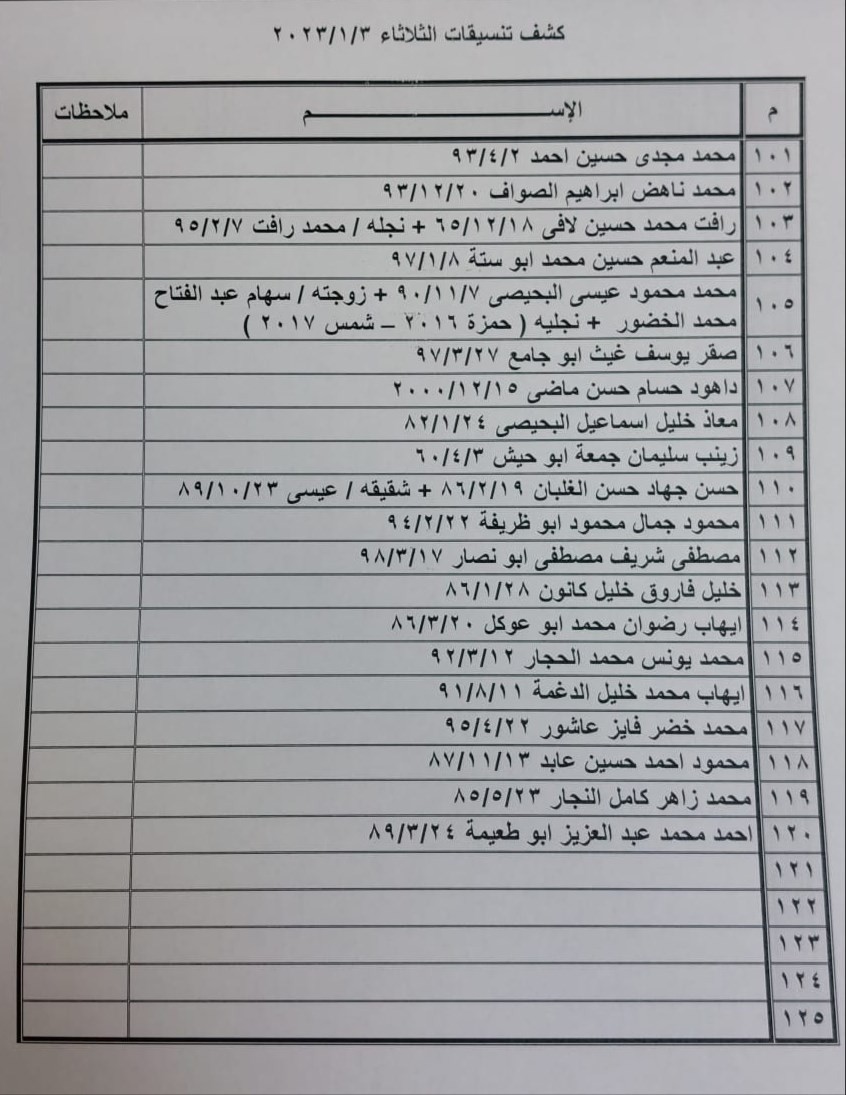 كشف تنسيقات الثلاثاء ٢٠٢٣/١/٣
م الإســــــــم ملاحظات
١٠١ محمد مجدى حسين احمد ٩٣/٤/٢
١٠٢ محمد ناهض ابراهيم الصواف ٩٣/١٢/٢٠
١٠٣ رافت محمد حسين لافى ٦٥/١٢/١٨ + نجله / محمد رافت ٩٥/٢/٧
١٠٤ عبد المنعم حسين محمد ابو ستة ٩٧/١/٨
١٠٥ محمد محمود عيسى البحيصى ٩٠/١١/٧ + زوجته / سهام عبد الفتاح
محمد الخضور + نجليه ( حمزة ٢٠١٦ – شمس ٢٠١٧ )
١٠٦ صقر يوسف غيث ابو جامع ٩٧/٣/٢٧
١٠٧ داهود حسام حسن ماضى ٢٠٠٠/١٢/١٥
١٠٨ معاذ خليل اسماعيل البحيصى ٨٢/١/٢٤
١٠٩ زينب سليمان جمعة ابو حيش ٦٠/٤/٣
١١٠ حسن جهاد حسن الغلبان ٨٦/٢/١٩ + شقيقه / عيسى ٨٩/١٠/٢٣
١١١ محمود جمال محمود ابو ظريفة ٩٤/٢/٢٢
١١٢ مصطفى شريف مصطفى ابو نصار ٩٨/٣/١٧
١١٣ خليل فاروق خليل كانون ٨٦/١/٢٨
١١٤ ايهاب رضوان محمد ابو عوكل ٨٦/٣/٢٠
١١٥ محمد يونس محمد الحجار ٩٢/٣/١٢
١١٦ ايهاب محمد خليل الدغمة ٩١/٨/١١
١١٧ محمد خضر فايز عاشور ٩٥/٤/٢٢
١١٨ محمود احمد حسين عابد ٨٧/١١/١٣
١١٩ محمد زاهر كامل النجار ٨٥/٥/٢٣
١٢٠ احمد محمد عبد العزيز ابو طعيمة ٨٩/٣/٢٤
١٢١
١٢٢
١٢٣
١٢٤
١٢٥